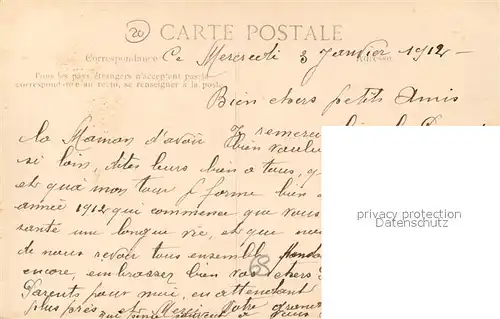 20
CARTE POSTALE
Correspondance Ce Mercredi 3 Janvier 1912 -
Tous les pays étrangers n'acceptent pas la
correspondance au recto, se renseigner à la poste
Bien chers petits Amis
Je remercie
la Maman d'avoir bien voulu
si loin, dites leurs bien à tous,
et qu'à mon tour je forme bien
année 1912 qui commence que vous
santé une longue vie, et que
de nous revoir tous ensemble
encore, embrasser bien vos chers
Parents pour moi, en attendant
plus près Merci Votre
privacy protection
Adresse
68